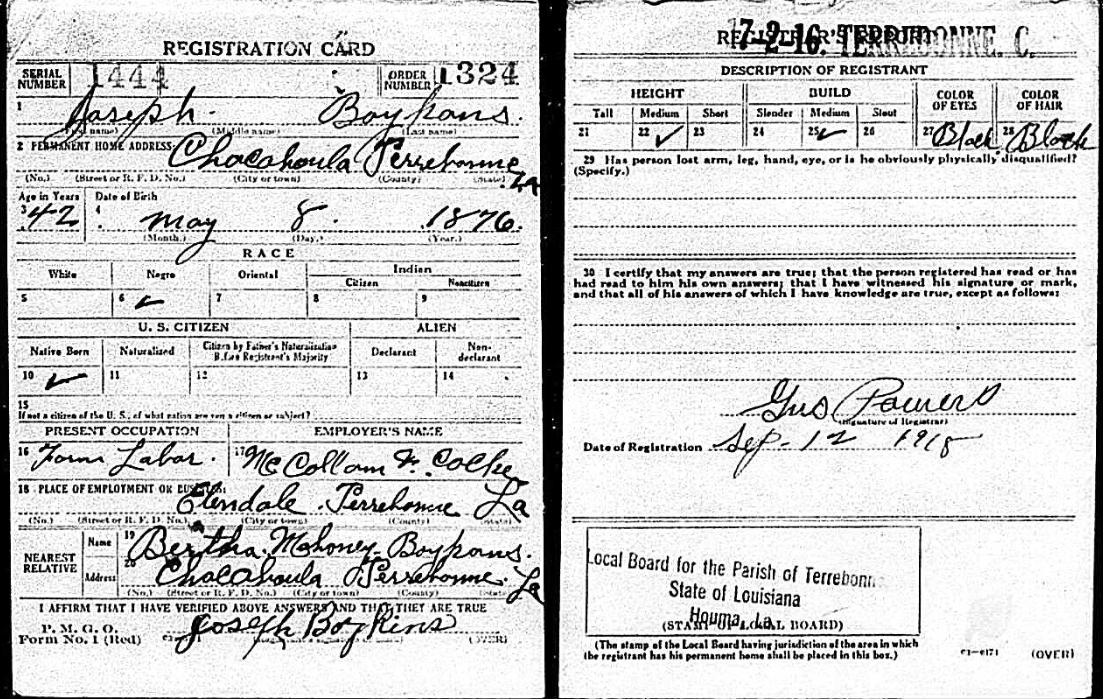 REGISTRATION CARD
SERIAL NUMBER 1444 ORDER NUMBER 1324
1 Joseph Boykans.
(First name) (Middle name) (Last name)
2 PERMANENT HOME ADDRESS: Chacahoula Terrebonne La
(No.) (Street or R. F. D. No.) (City or town) (County) (State)
Age in Years Date of Birth
3 42 4 May 8. 1876.
(Month.) (Day.) (Year.)
RACE
White Negro Oriental Indian
Citizen Noncitizen
5 6 ✓ 7 8 9
U. S. CITIZEN ALIEN
Native Born Naturalized Citizen by Father's Naturalization Before Registrant's Majority Declarant Non-declarant
10 ✓ 11 12 13 14
15
If not a citizen of the U. S., of what nation are you a citizen or subject?
PRESENT OCCUPATION EMPLOYER'S NAME
16 Farm Labor. 17 McCollam &
18 PLACE OF EMPLOYMENT OR BUSINESS:
Elendale Terrebonne La
(No.) (Street or R. F. D. No.) (City or town) (County) (State)
NEAREST RELATIVE
Name 19 Bertha Mahoney Boykans.
Address 20 Chacahoula Terrebonne. La
(No.) (Street or R. F. D. No.) (City or town) (County) (State)
I AFFIRM THAT I HAVE VERIFIED ABOVE ANSWERS AND THAT THEY ARE TRUE
P. M. G. O.
Form No. 1 (Red) Joseph Boykins (OVER)
REGISTRAR'S REPORT
17-2-16. TERREBONNE. C.
DESCRIPTION OF REGISTRANT
HEIGHT BUILD COLOR OF EYES COLOR OF HAIR
Tall Medium Short Slender Medium Stout
21 22 ✓ 23 24 25 ✓ 26 27 Black 28 Black
29 Has person lost arm, leg, hand, eye, or is he obviously physically disqualified?
(Specify.)
30 I certify that my answers are true; that the person registered has read or has
had read to him his own answers; that I have witnessed his signature or mark,
and that all of his answers of which I have knowledge are true, except as follows:
Gus
(Signature of Registrar)
Date of Registration Sep - 12 1918
Local Board for the Parish of Terrebonne
State of Louisiana
Houma, La.
(STAMP OF LOCAL BOARD)
(The stamp of the Local Board having jurisdiction of the area in which
the registrant has his permanent home shall be placed in this box.)
(OVER)